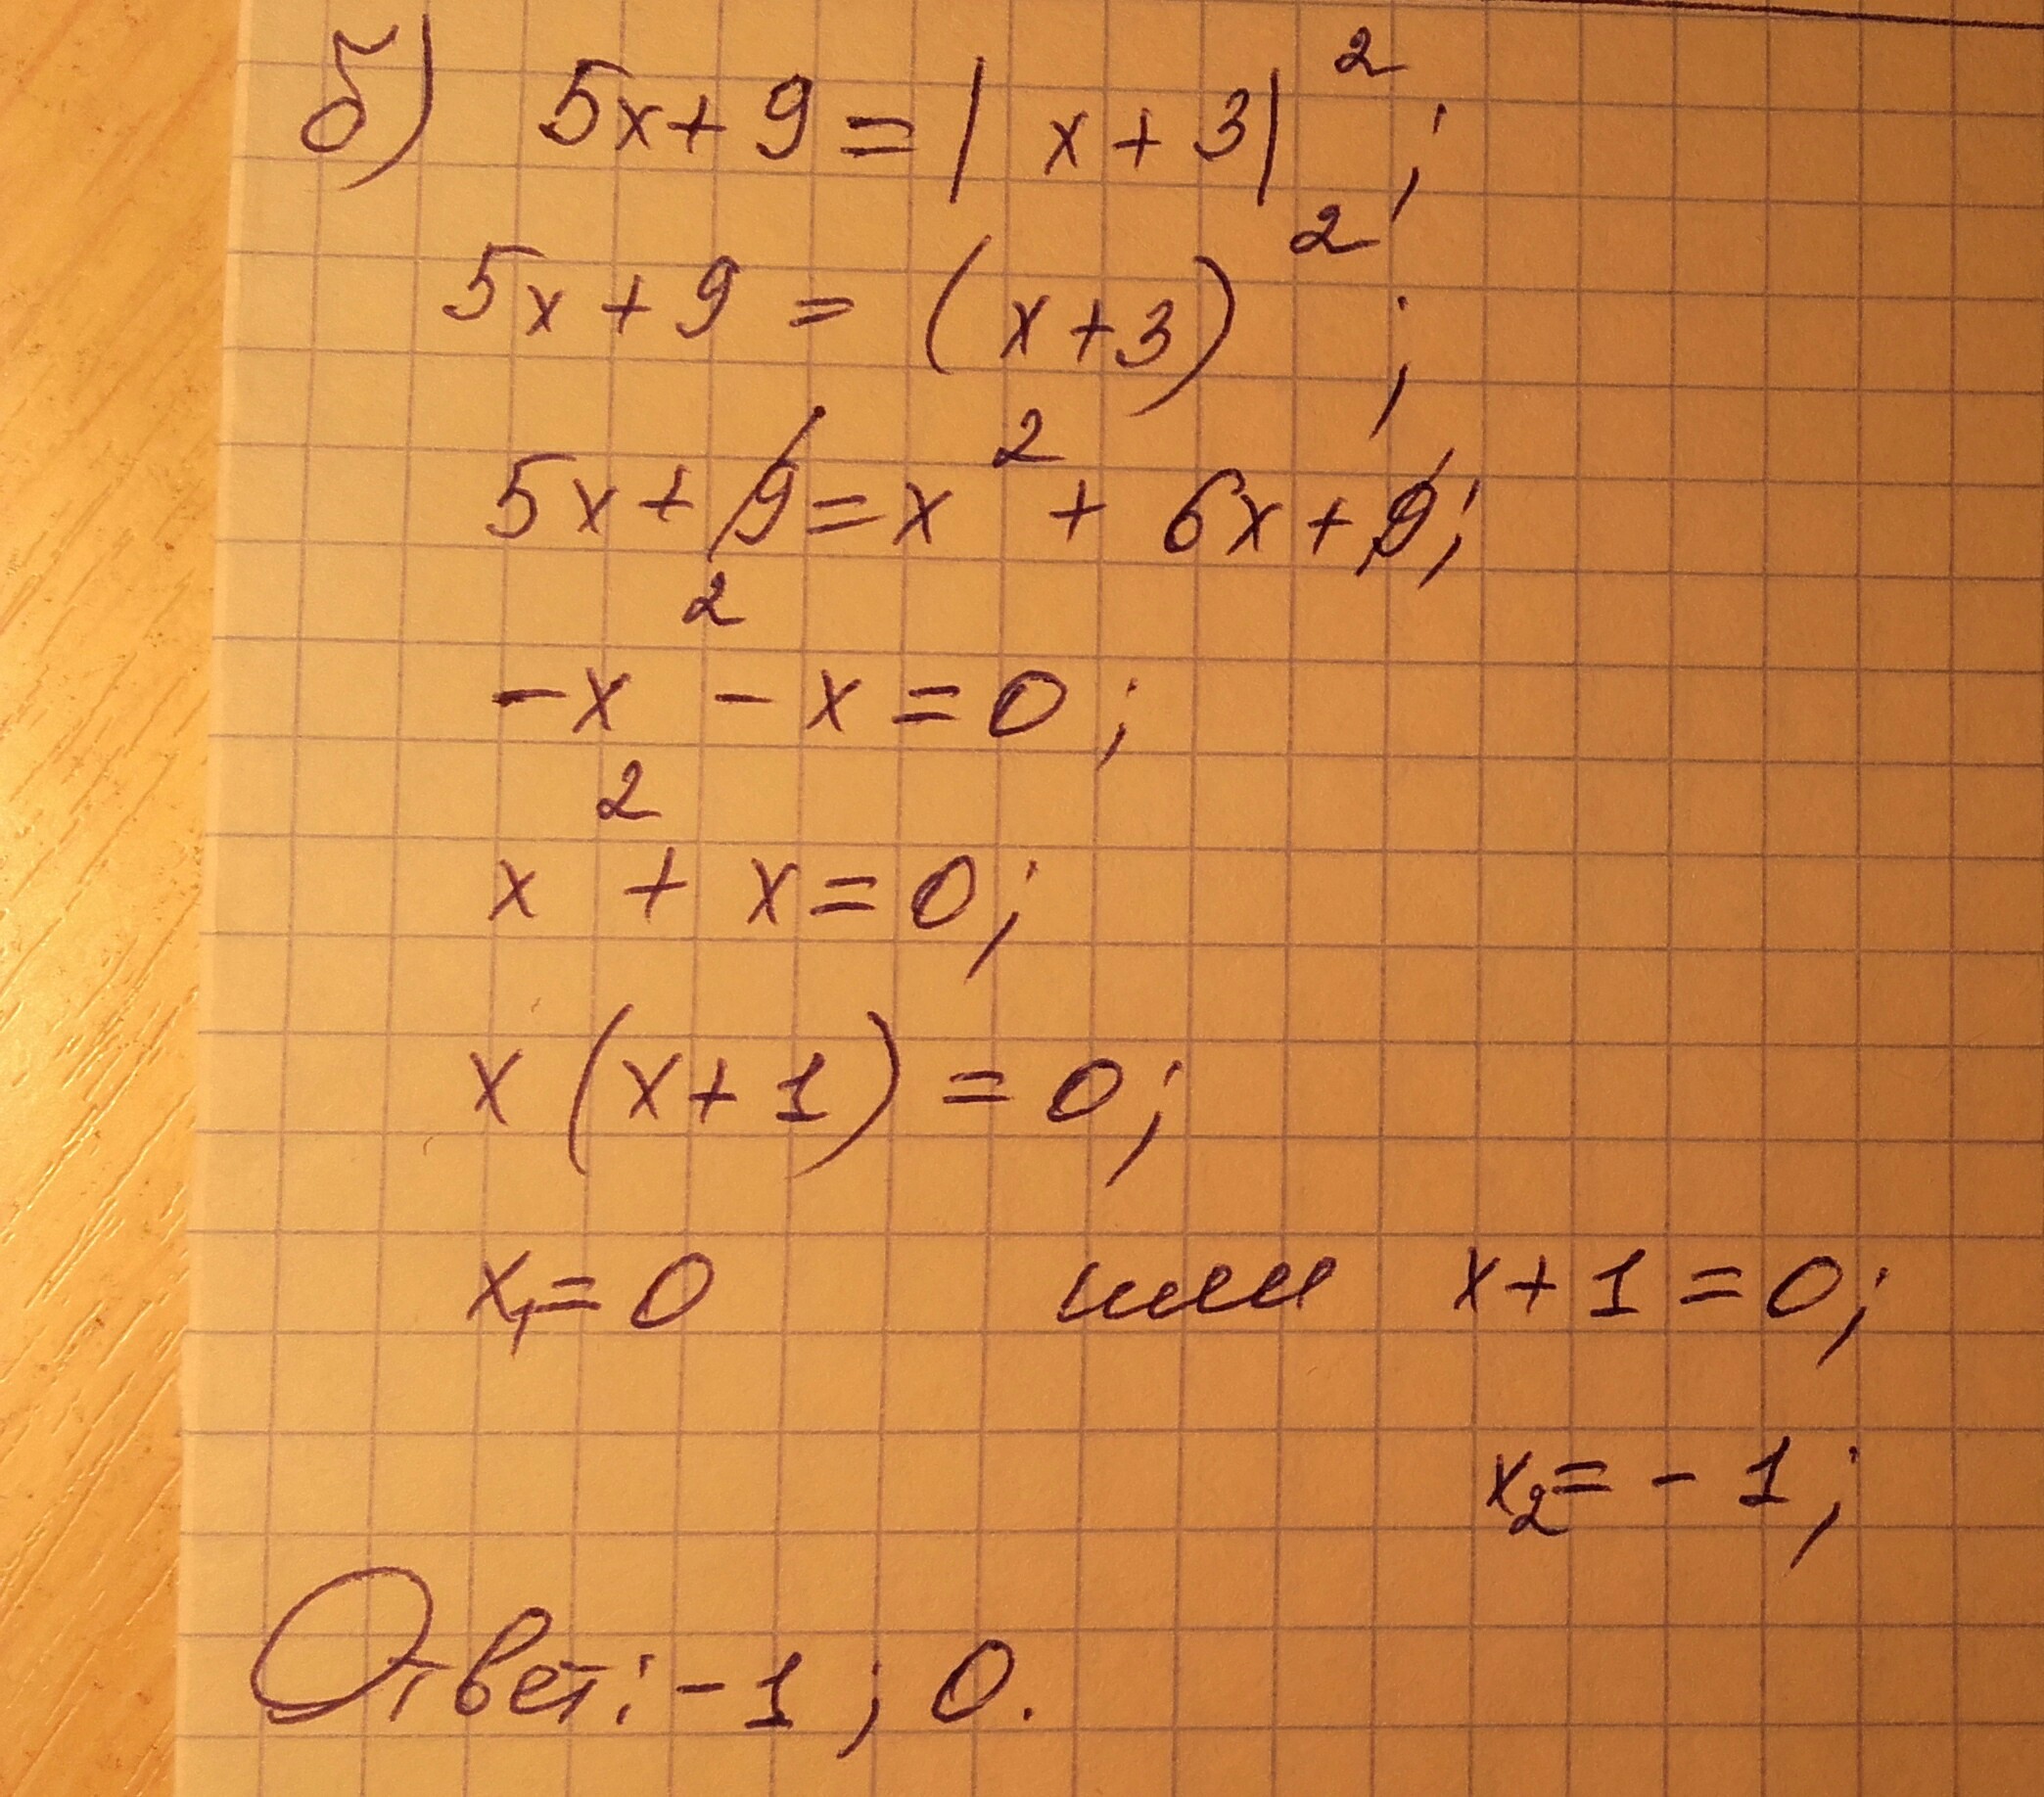 б) 5x + 9 = | x + 3|²;
5x + 9 = (x + 3)²;
5x + 9 = x² + 6x + 9;
-x² - x = 0;
x² + x = 0;
x (x + 1) = 0;
x₁ = 0 или x + 1 = 0;
x₂ = - 1;
Ответ: - 1; 0.